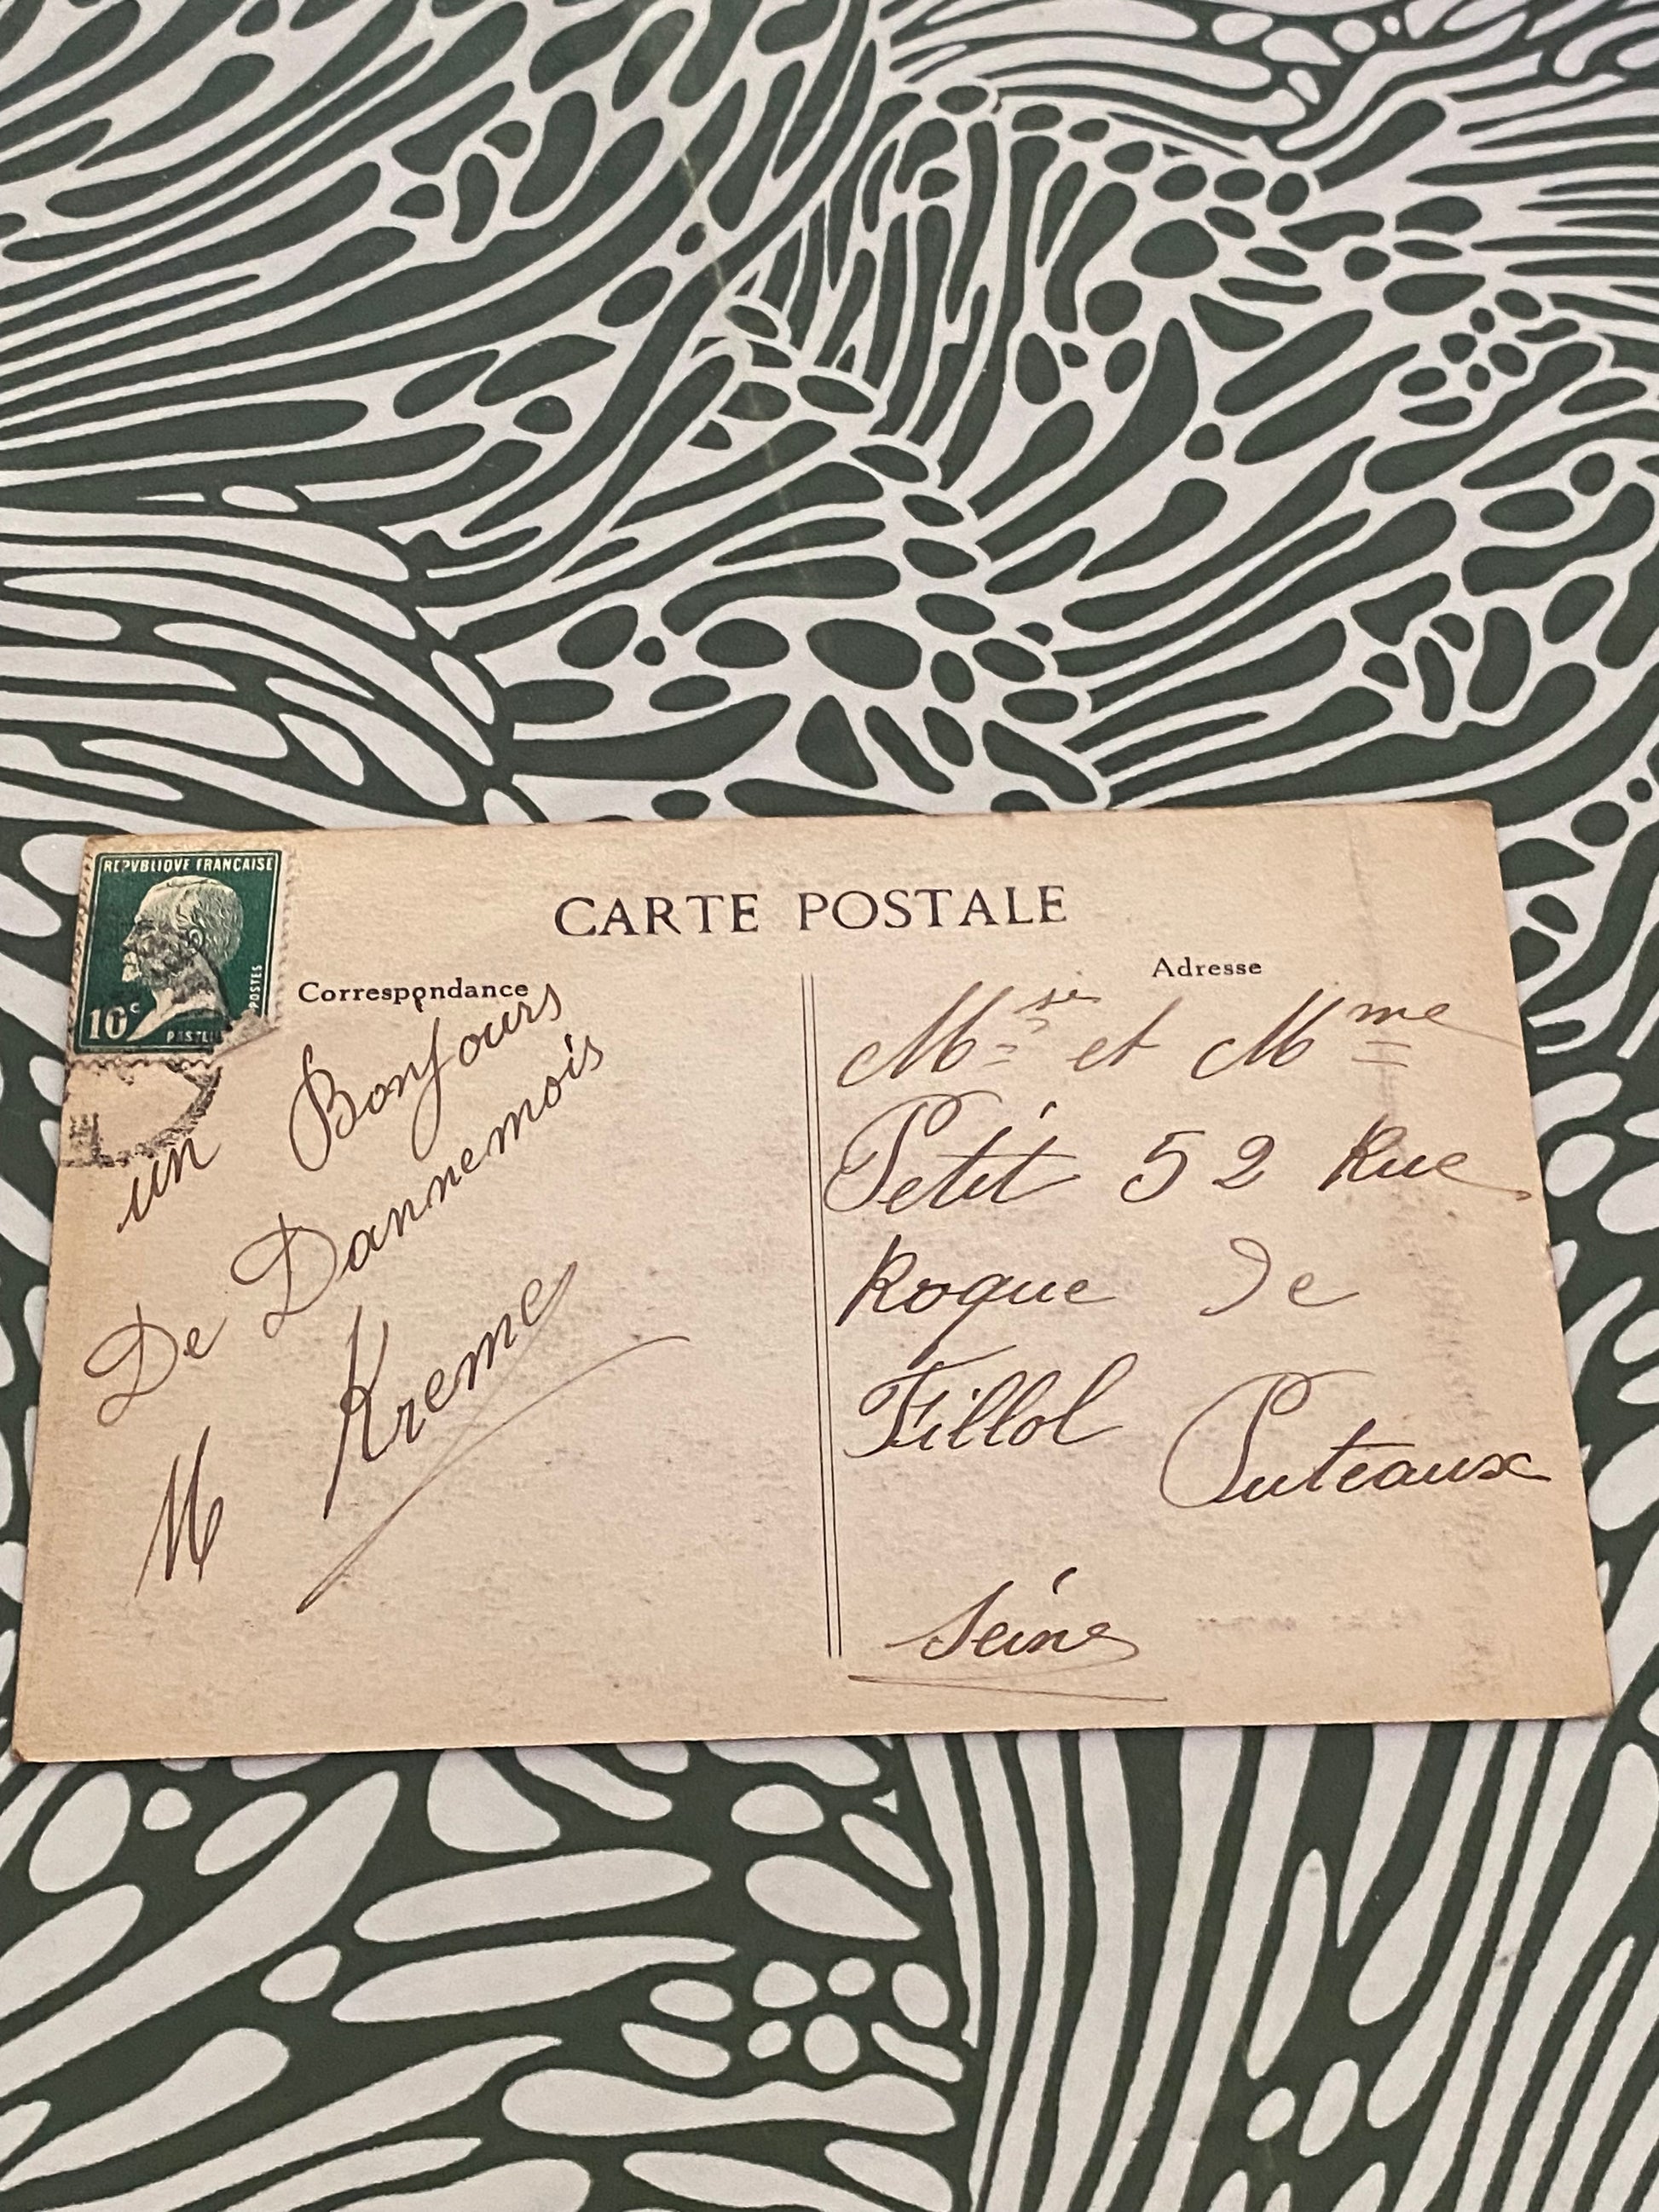 REPVBLIQVE FRANCAISE
POSTES
10c
CARTE POSTALE
Correspondance
un Bonjours
De Dannemois
M Kreme
Adresse
Msr et Mme
Petit 52 Rue
Roque De
Fillol Puteaux
Seine